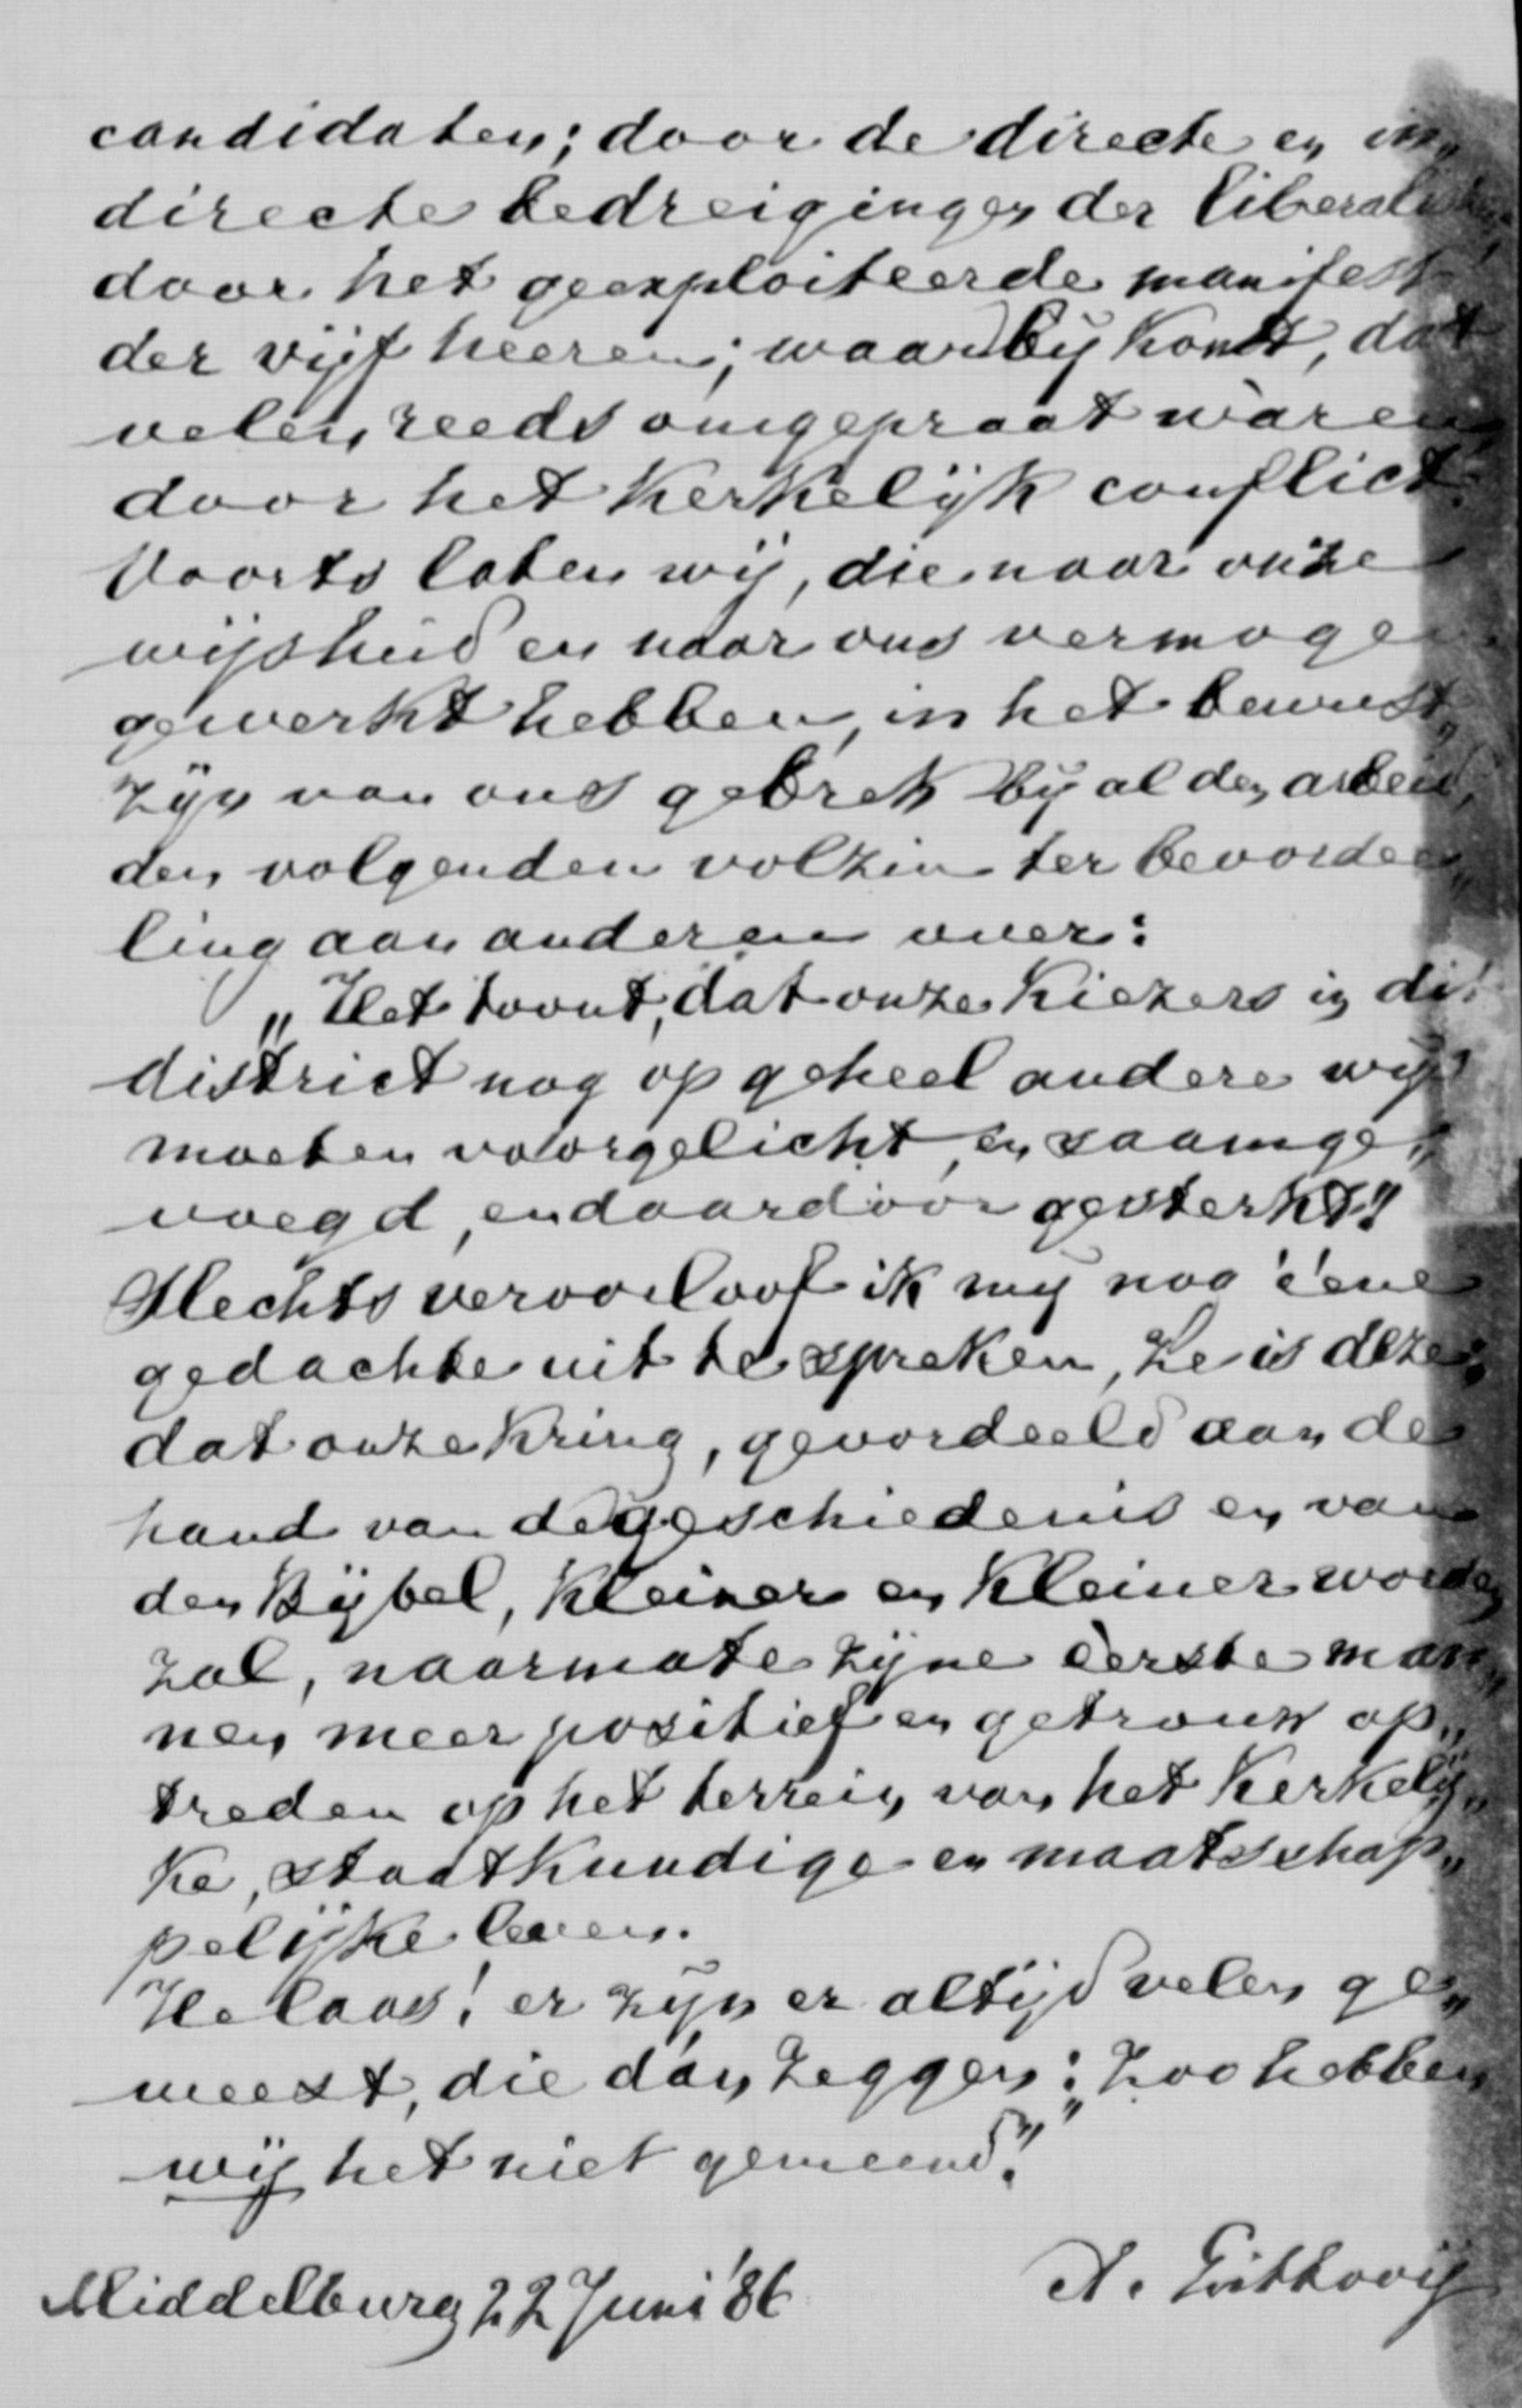 candidaten; door de directe en in„
directe bedreigingen der liberalisten
door het geëxploiteerde manifest
der vijf heeren; waarbij komt, dat
velen reeds omgepraat waren
door het Kerkelijk conflict.
Voorts laten wij, die naar onze
wijsheid en naar ons vermogen
gewerkt hebben, in het bewust„
zijn van ons gebrek bij al den arbeid,
den volgenden volzin ter beoordee„
ling aan anderen over:
„Het toont, dat onze Kiezers in dit
district nog op geheel andere wijs
moeten voorgelicht, en saamge„
voegd, en daardoor gesterkt!"
Slechts veroorloof ik mij nog ééne
gedachte uit te spreken, Ze is deze:
dat onze Kring, geoordeeld aan de
hand van de geschiedenis en van
den Bijbel, Kleiner en Kleiner worden
zal, naarmate zijne eerste man„
nen meer positief en getrouw op„
treden op het terrein van het Kerkelij„
ke, staatkundige en maatschap„
pelijke leven.
Helaas! er zijn er altijd velen ge„
weest, die dan zeggen: „Zoo hebben
wij het niet gemeend!"
Middelburg 22 Juni '86